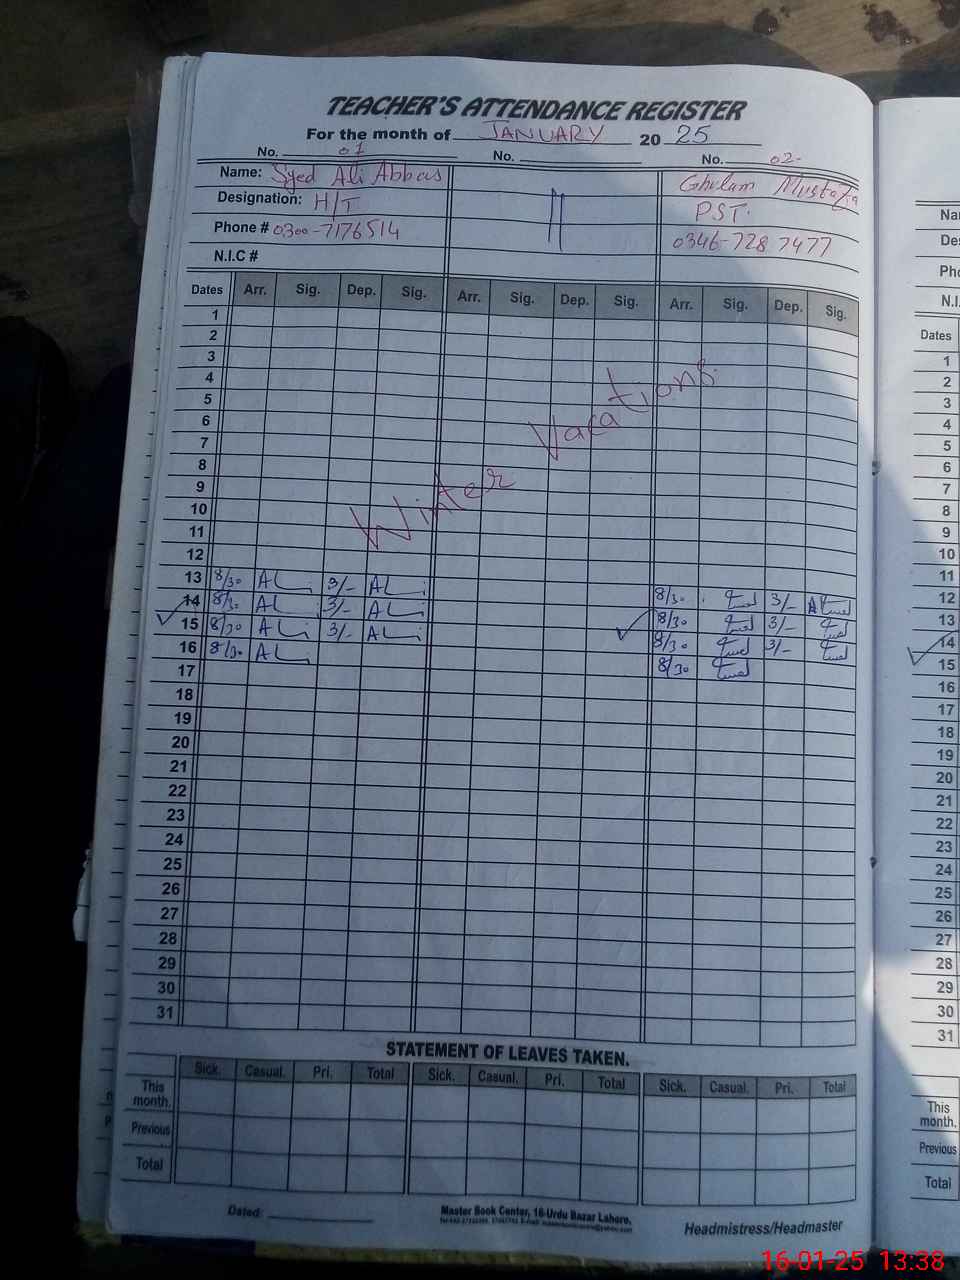 TEACHER'S ATTENDANCE REGISTER
For the month of JANUARY 2025
No. 01 No. No. 02
Name: Syed Ali Abbas Ghulam Mustafa
Designation: H/T PST.
Phone # 0300-7176514 0346-728 7477
N.I.C #
Dates Arr. Sig. Dep. Sig. Arr. Sig. Dep. Sig. Arr. Sig. Dep. Sig.
1
2
3
4
5
6
7
8
9
10
11
12
Winter Vacations.
13 8/30 ALi 3/- ALi 8/30 3/-
14 8/30 ALi 3/- ALi 8/30 3/-
15 8/30 ALi 3/- ALi 8/30 3/-
16 8/30 ALi 8/30
17
18
19
20
21
22
23
24
25
26
27
28
29
30
31
STATEMENT OF LEAVES TAKEN.
Sick. Casual. Pri. Total Sick. Casual. Pri. Total Sick. Casual. Pri. Total
This month.
Previous
Total
Dated:
Master Book Center, 16-Urdu Bazar Lahore.
Headmistress/Headmaster
Na
De
Pho
N.I.
Dates
1
2
3
4
5
6
7
8
9
10
11
12
13
14
15
16
17
18
19
20
21
22
23
24
25
26
27
28
29
30
31
This month.
Previous
Total
16-01-25 13:38